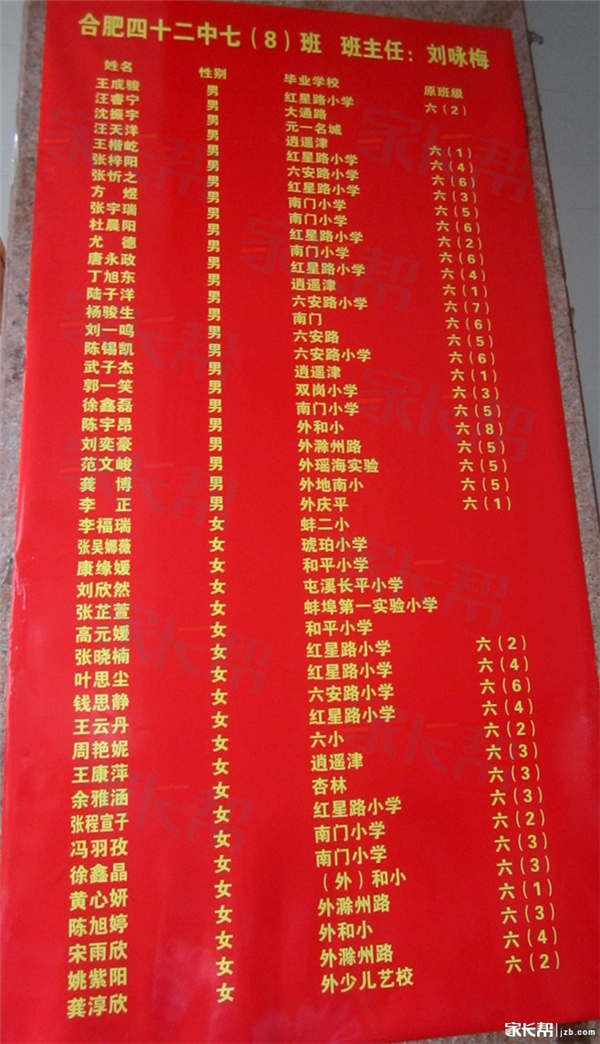 合肥四十二中七(8)班 班主任：刘咏梅
姓名 性别 毕业学校 原班级
王成骏 男 红星路小学 六(2)
汪睿宁 男 大通路
沈振宇 男 元一名城
汪天洋 男 逍遥津 六(1)
王楷屹 男 红星路小学 六(4)
张梓阳 男 六安路小学 六(6)
张忻之 男 红星路小学 六(3)
方 煜 男 南门小学 六(5)
张宇瑞 男 南门小学 六(6)
杜晨阳 男 红星路小学 六(2)
尤 德 男 南门小学 六(6)
唐永政 男 红星路小学 六(4)
丁旭东 男 逍遥津 六(1)
陆子洋 男 六安路小学 六(7)
杨骏生 男 南门 六(6)
刘一鸣 男 六安路 六(5)
陈锡凯 男 六安路小学 六(6)
武子杰 男 逍遥津 六(1)
郭一笑 男 双岗小学 六(3)
徐鑫磊 男 南门小学 六(5)
陈宇昂 男 外和小 六(8)
刘奕豪 男 外滁州路 六(5)
范文峻 男 外瑶海实验 六(5)
龚 博 男 外地南小 六(5)
李 正 男 外庆平 六(1)
李福瑞 女 蚌二小
张吴娜薇 女 琥珀小学
康缘媛 女 和平小学
刘欣然 女 屯溪长平小学
张芷萱 女 蚌埠第一实验小学
高元媛 女 和平小学
张晓楠 女 红星路小学 六(2)
叶思尘 女 红星路小学 六(4)
钱思静 女 六安路小学 六(6)
王云丹 女 红星路小学 六(4)
周艳妮 女 六小 六(2)
王康萍 女 逍遥津 六(3)
余雅涵 女 杏林 六(3)
张程宣子 女 红星路小学 六(3)
冯羽孜 女 南门小学 六(2)
徐鑫晶 女 南门小学 六(3)
黄心妍 女 (外)和小 六(3)
陈旭婷 女 外滁州路 六(1)
宋雨欣 女 外和小 六(3)
姚紫阳 女 外滁州路 六(4)
龚淳欣 女 外少儿艺校 六(2)
家长帮 jzb.com